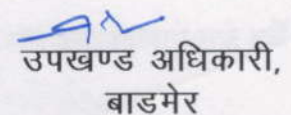 उपखण्ड अधिकारी,
बाडमेर